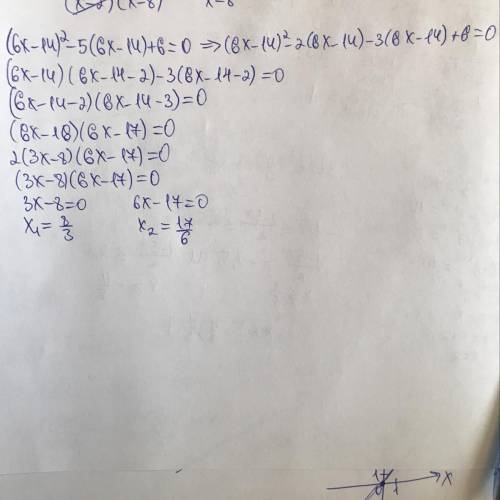 (x-2)(x-8) x-8
(6x-14)²-5(6x-14)+6=0 => (6x-14)²-2(6x-14)-3(6x-14)+6=0
(6x-14)(6x-14-2)-3(6x-14-2)=0
(6x-14-2)(6x-14-3)=0
(6x-16)(6x-17)=0
2(3x-8)(6x-17)=0
(3x-8)(6x-17)=0
3x-8=0 6x-17=0
x₁=8/3 x₂=17/6
x